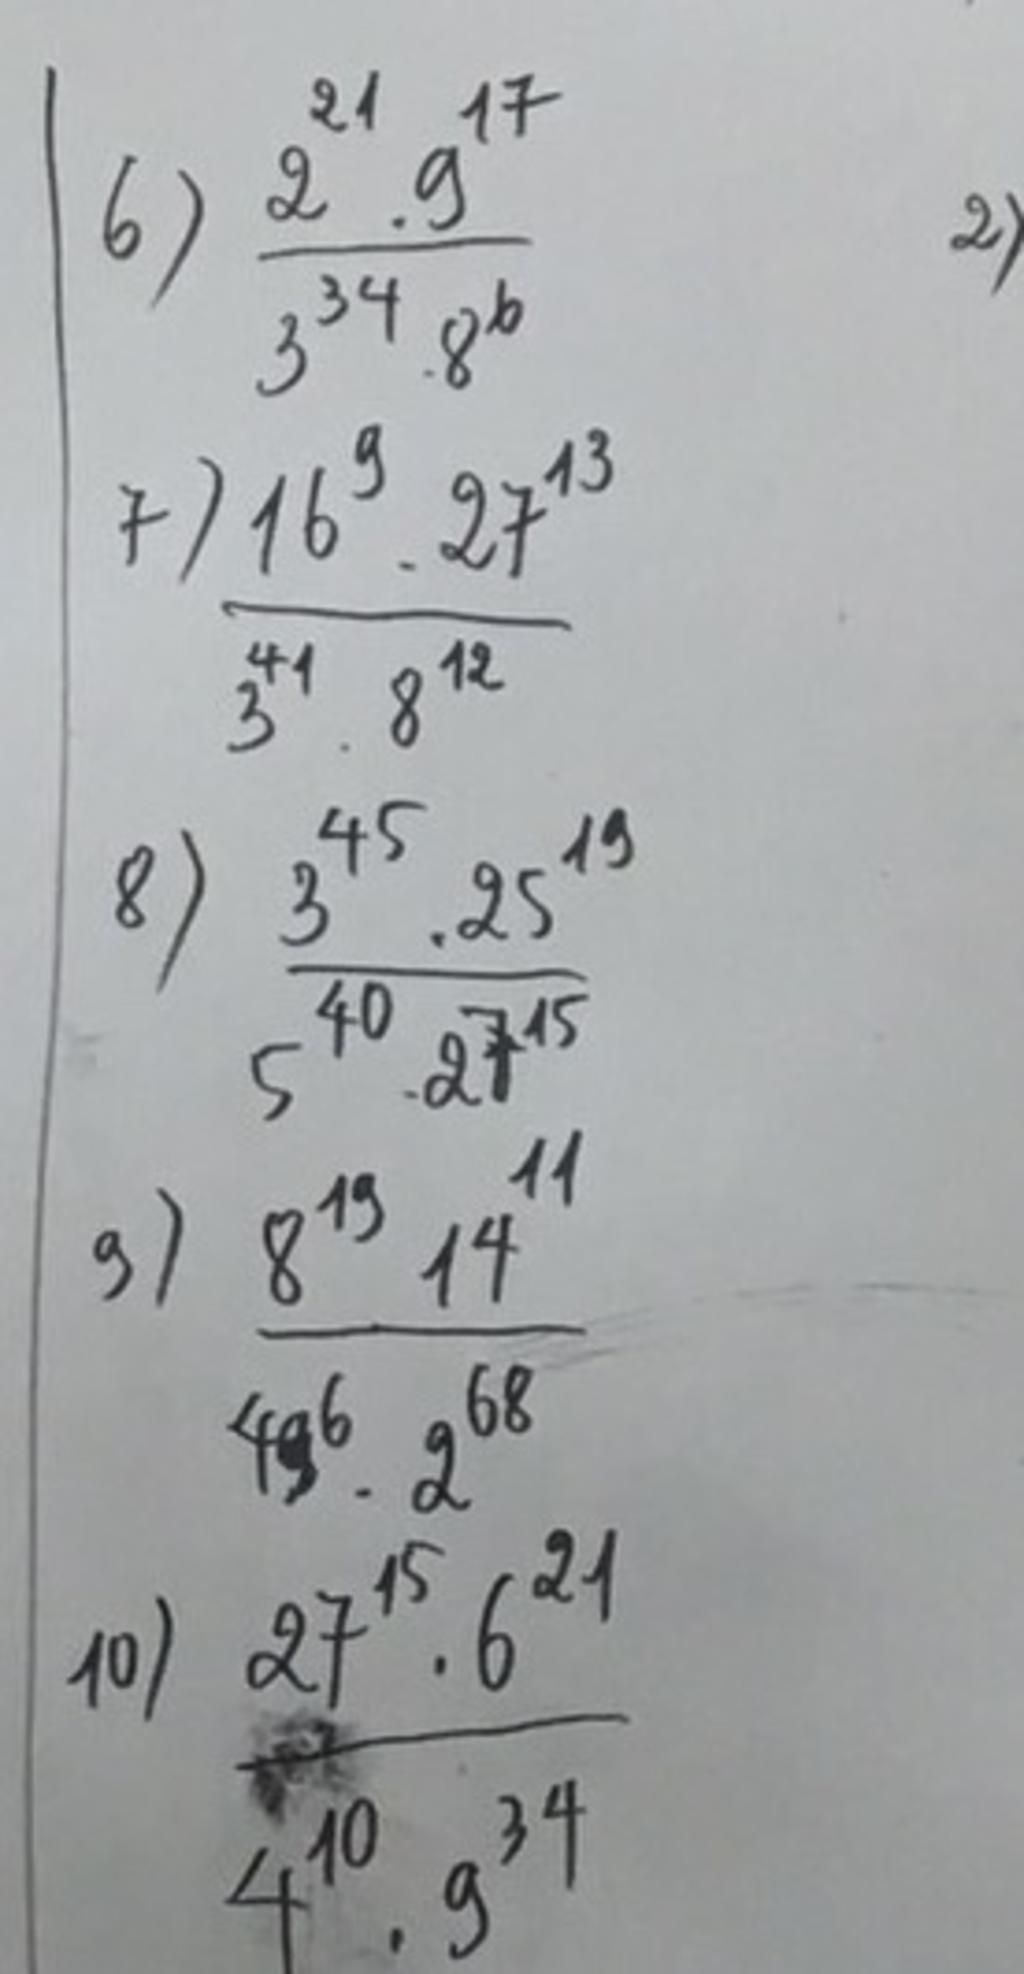 6) 2^21 . 9^17
3^34 . 8^6
2)
7) 16^9 . 27^13
3^41 . 8^12
8) 3^45 . 25^19
5^40 . 27^15
9) 8^19 14^11
49^6 . 2^68
10) 27^15 . 6^21
4^10 . 9^34